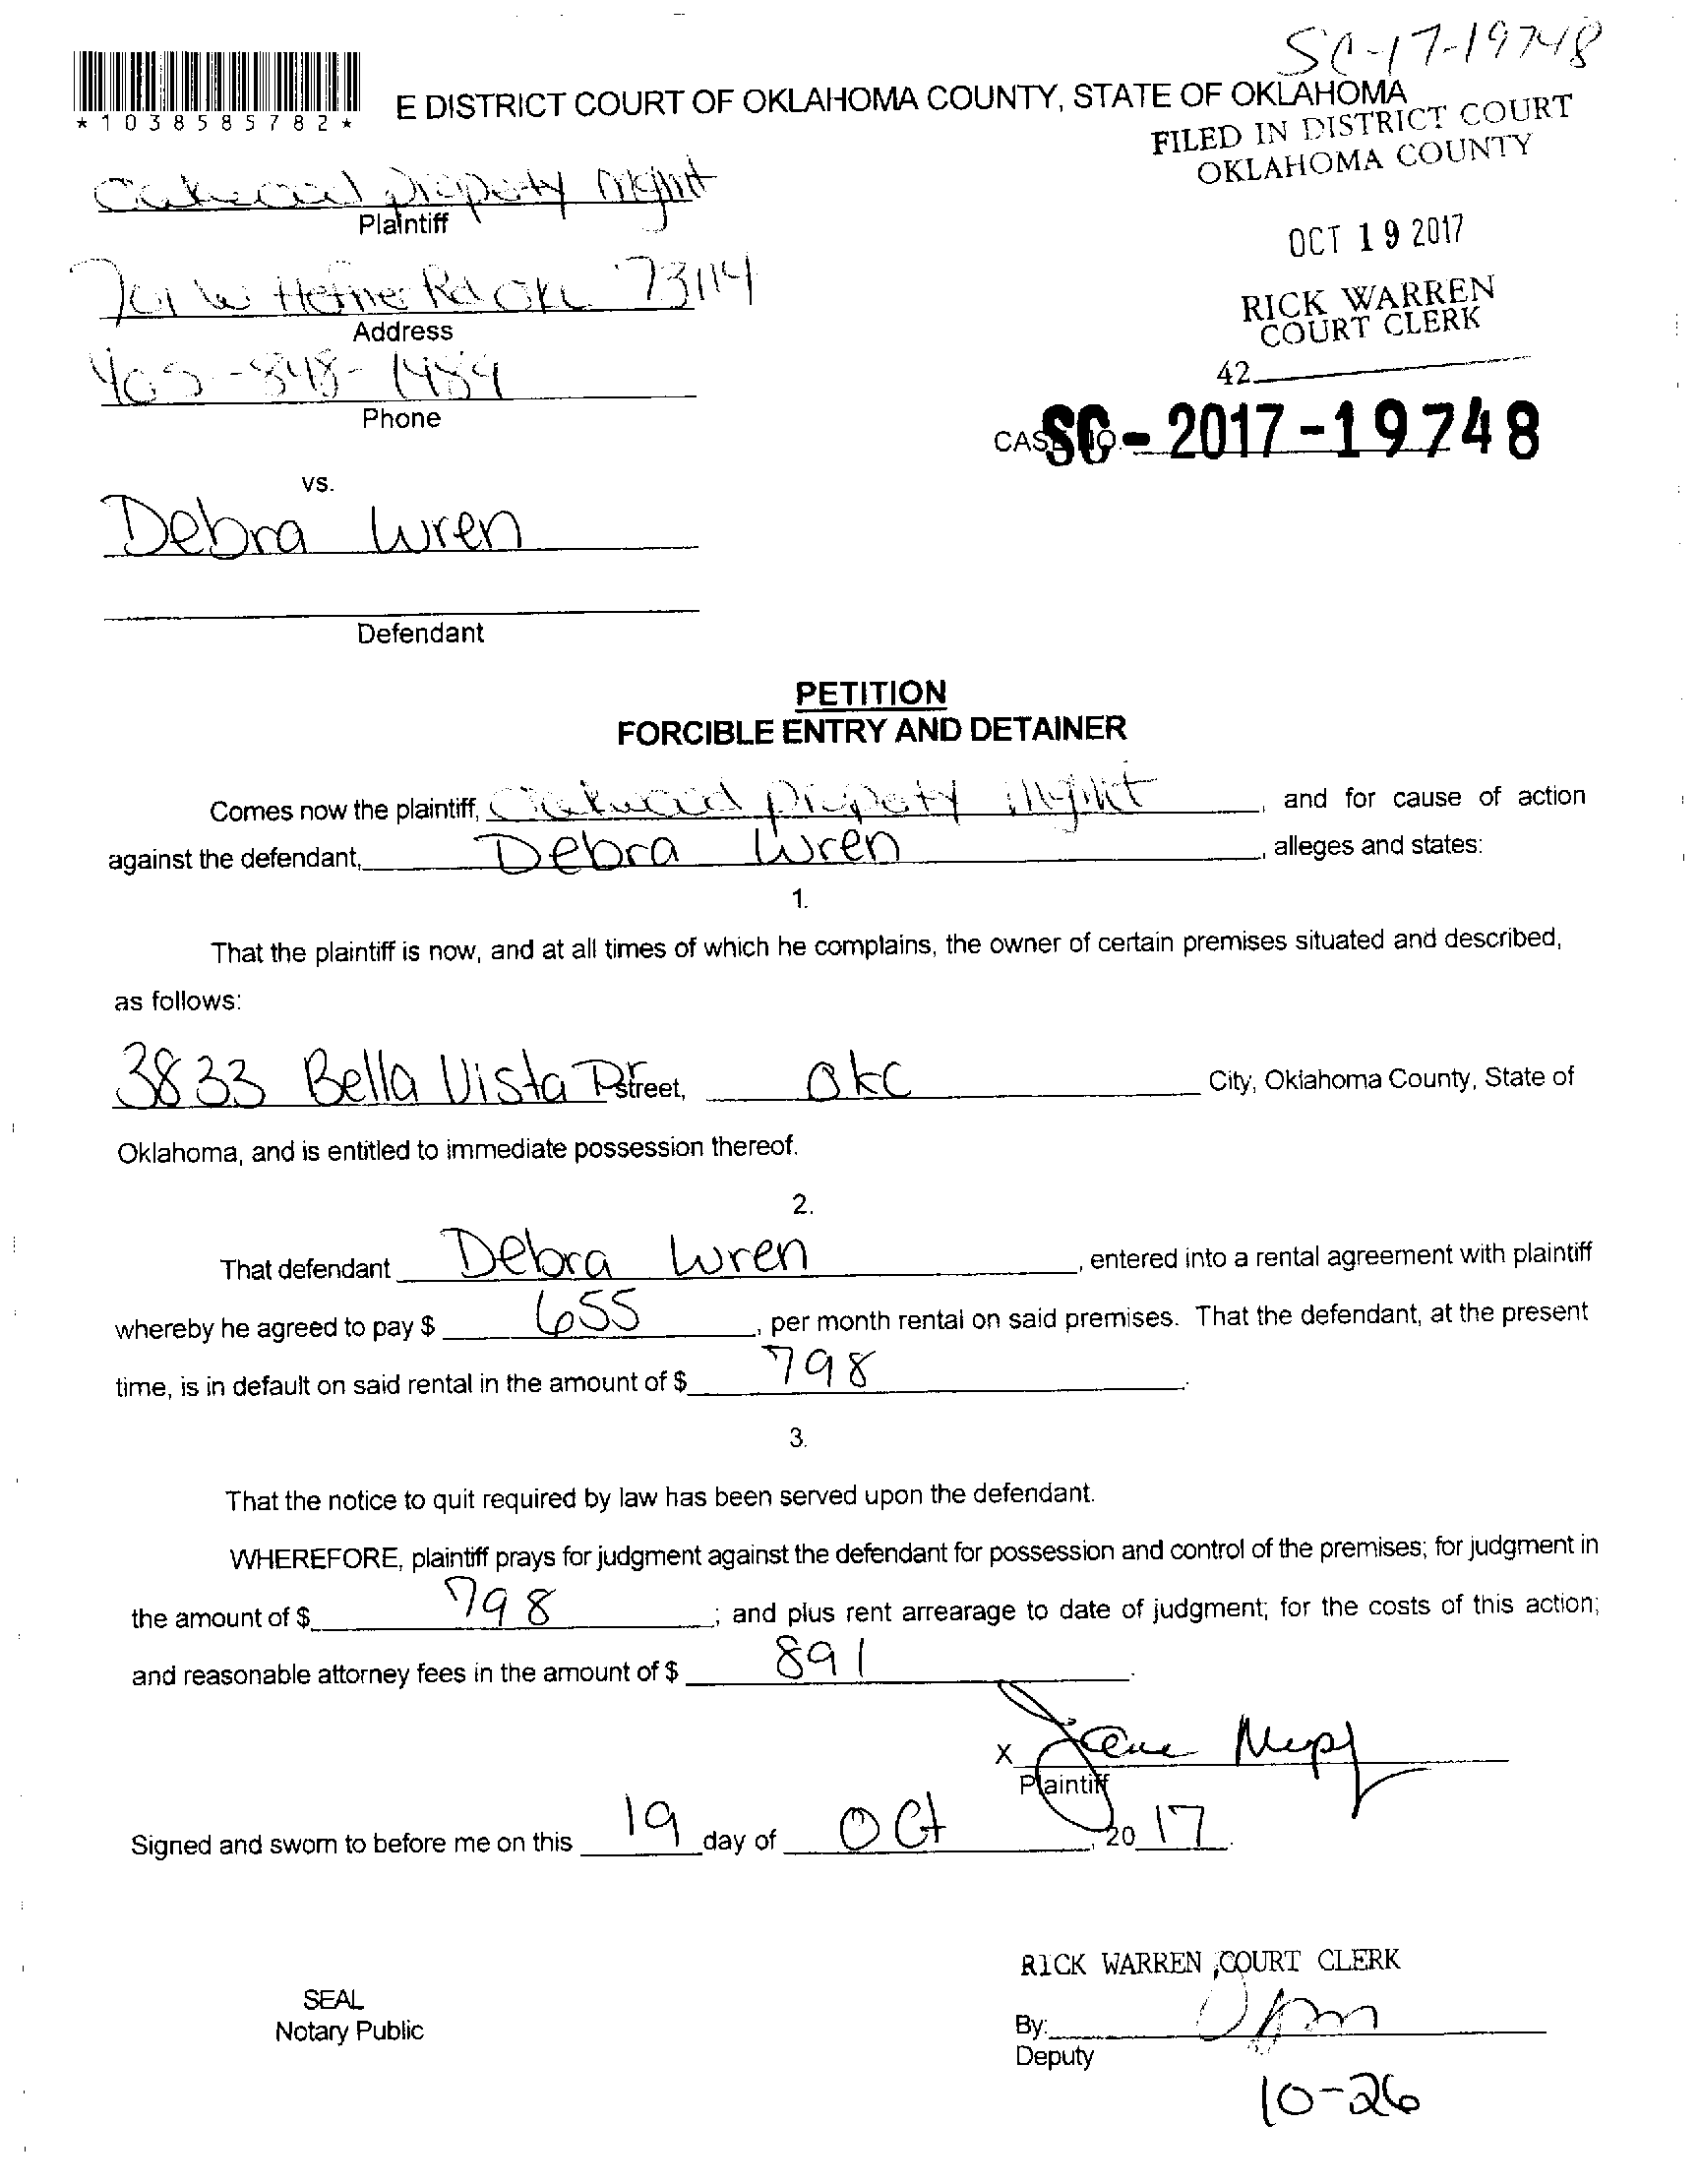 SC-17-19748
*1038585782*
E DISTRICT COURT OF OKLAHOMA COUNTY, STATE OF OKLAHOMA
FILED IN DISTRICT COURT
OKLAHOMA COUNTY
Oakwood Property Mgmt
Plaintiff
OCT 19 2017
701 W Hefner Rd OKC 73114
Address
RICK WARREN
COURT CLERK
405-848-1484
Phone
42
CASE NO. SC-2017-19748
vs.
Debra Wren
Defendant
PETITION
FORCIBLE ENTRY AND DETAINER
Comes now the plaintiff, Oakwood Property Mgmt, and for cause of action
against the defendant, Debra Wren, alleges and states:
1.
That the plaintiff is now, and at all times of which he complains, the owner of certain premises situated and described,
as follows:
3833 Bella Vista Dr Street, OKC City, Oklahoma County, State of
Oklahoma, and is entitled to immediate possession thereof.
2.
That defendant Debra Wren, entered into a rental agreement with plaintiff
whereby he agreed to pay $ 655, per month rental on said premises. That the defendant, at the present
time, is in default on said rental in the amount of $ 798.
3.
That the notice to quit required by law has been served upon the defendant.
WHEREFORE, plaintiff prays for judgment against the defendant for possession and control of the premises; for judgment in
the amount of $ 798; and plus rent arrearage to date of judgment; for the costs of this action;
and reasonable attorney fees in the amount of $ 891.
X
Plaintiff
Signed and sworn to before me on this 19 day of Oct, 20 17.
RICK WARREN, COURT CLERK
SEAL
Notary Public
By:
Deputy
10-26